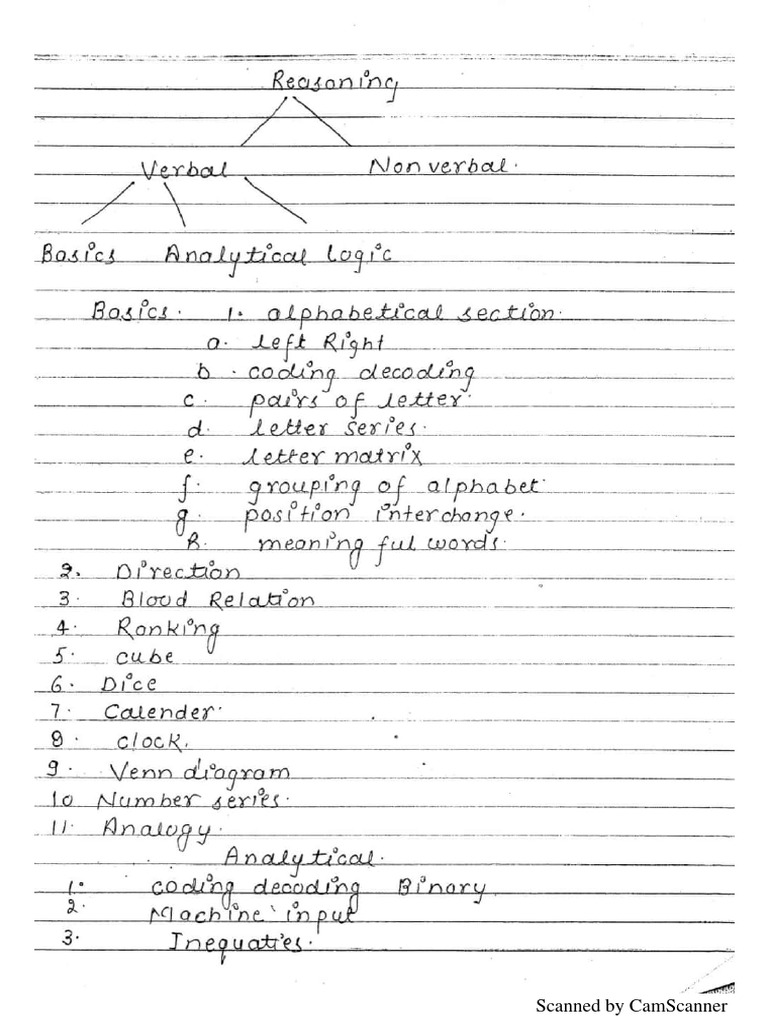 Reasoning
Verbal Nonverbal.
Basics Analytical Logic
Basics. 1. alphabetical section.
a. Left Right
b. coding decoding
c. pairs of letter.
d. letter series.
e. letter matrix
f. grouping of alphabet.
g. position interchange.
h. meaning ful words.
2. Direction
3. Blood Relation
4. Ranking
5. cube
6. Dice
7. Calender.
8. clock.
9. Venn diagram
10 Number series.
11. Analogy.
Analytical.
1. coding decoding Binary
2. Machine input
3. Inequaties.
Scanned by CamScanner